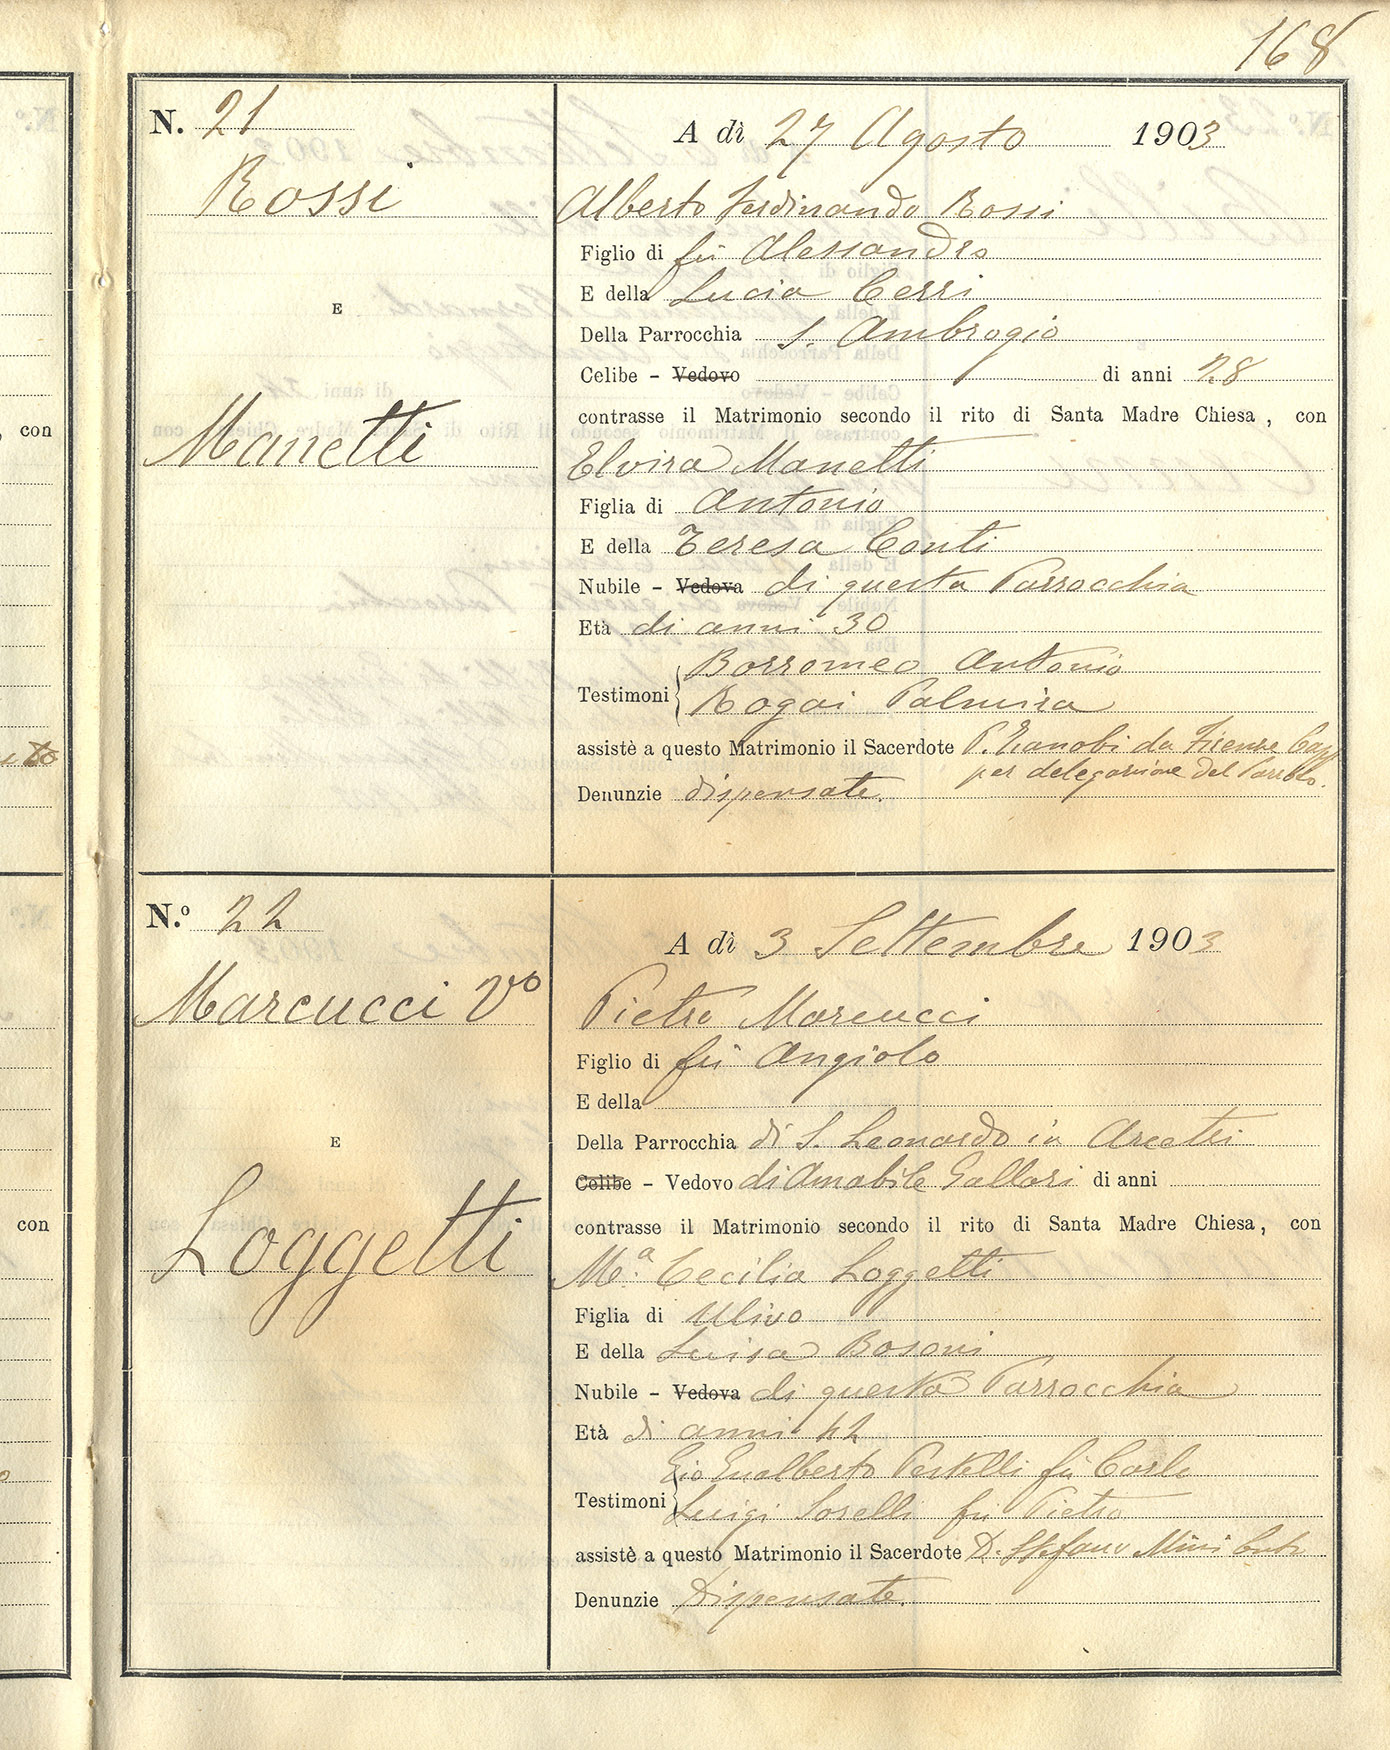 168
N. 21
Rossi
E
Manetti
A dì 27 Agosto 1903
Alberto Ferdinando Rossi
Figlio di fù Alessandro
E della Lucia Cerri
Della Parrocchia S. Ambrogio
Celibe – Vedovo di anni 28
contrasse il Matrimonio secondo il rito di Santa Madre Chiesa, con
Elvira Manetti
Figlia di Antonio
E della Teresa Conti
Nubile – Vedova di questa Parrocchia
Età di anni 30
Testimoni Borromeo Antonio
Rogai Palmira
assistè a questo Matrimonio il Sacerdote P. Zanobi da Firenze Capp
per delegazione del Parroco.
Denunzie dispensate.
N.º 22
Marcucci Vº
E
Loggetti
A dì 3 Settembre 1903
Pietro Marcucci
Figlio di fù Angiolo
E della
Della Parrocchia di S. Leonardo in Arcetri
Celibe – Vedovo di Amabile Gallori di anni
contrasse il Matrimonio secondo il rito di Santa Madre Chiesa, con
Mª. Cecilia Loggetti
Figlia di Ulivo
E della Luisa Bosoni
Nubile – Vedova di questa Parrocchia
Età di anni 42
Gio Gualberto Pestelli fù Carlo
Testimoni Luigi Sorelli fù Pietro
assistè a questo Matrimonio il Sacerdote D. Stefano Mini
Denunzie Dispensate.
con
con